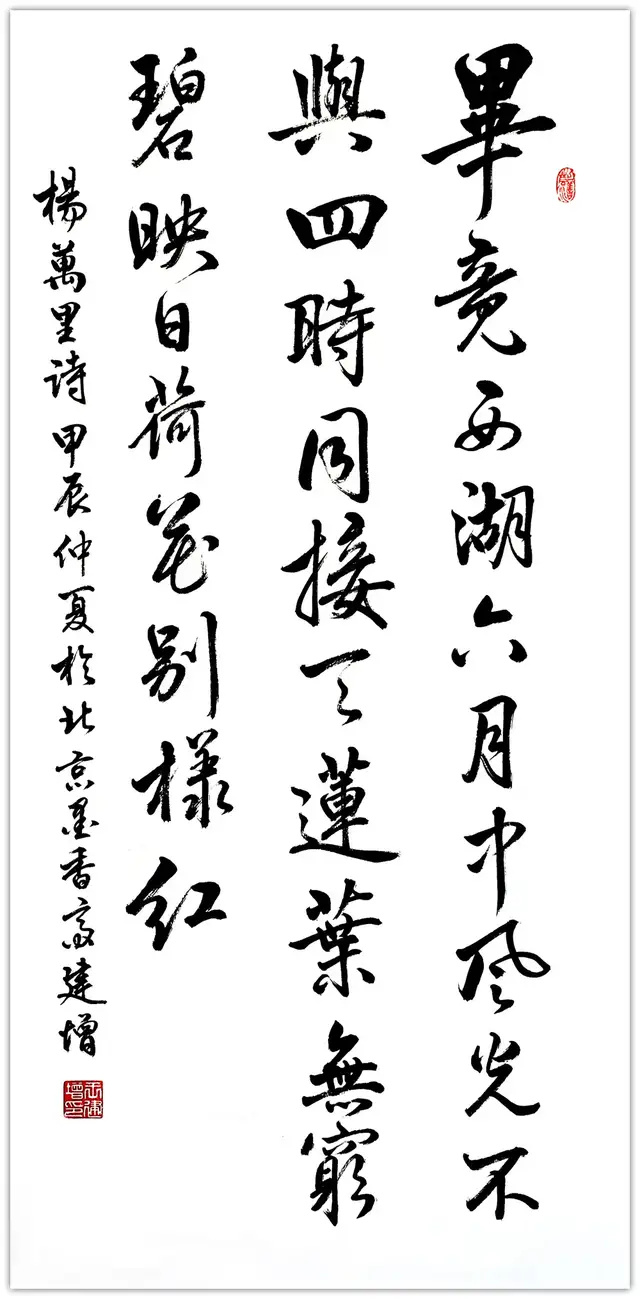 畢竟西湖六月中風光不
與四時同接天蓮葉無窮
碧映日荷花别樣红
楊萬里诗甲辰仲夏於北京墨香齋建增